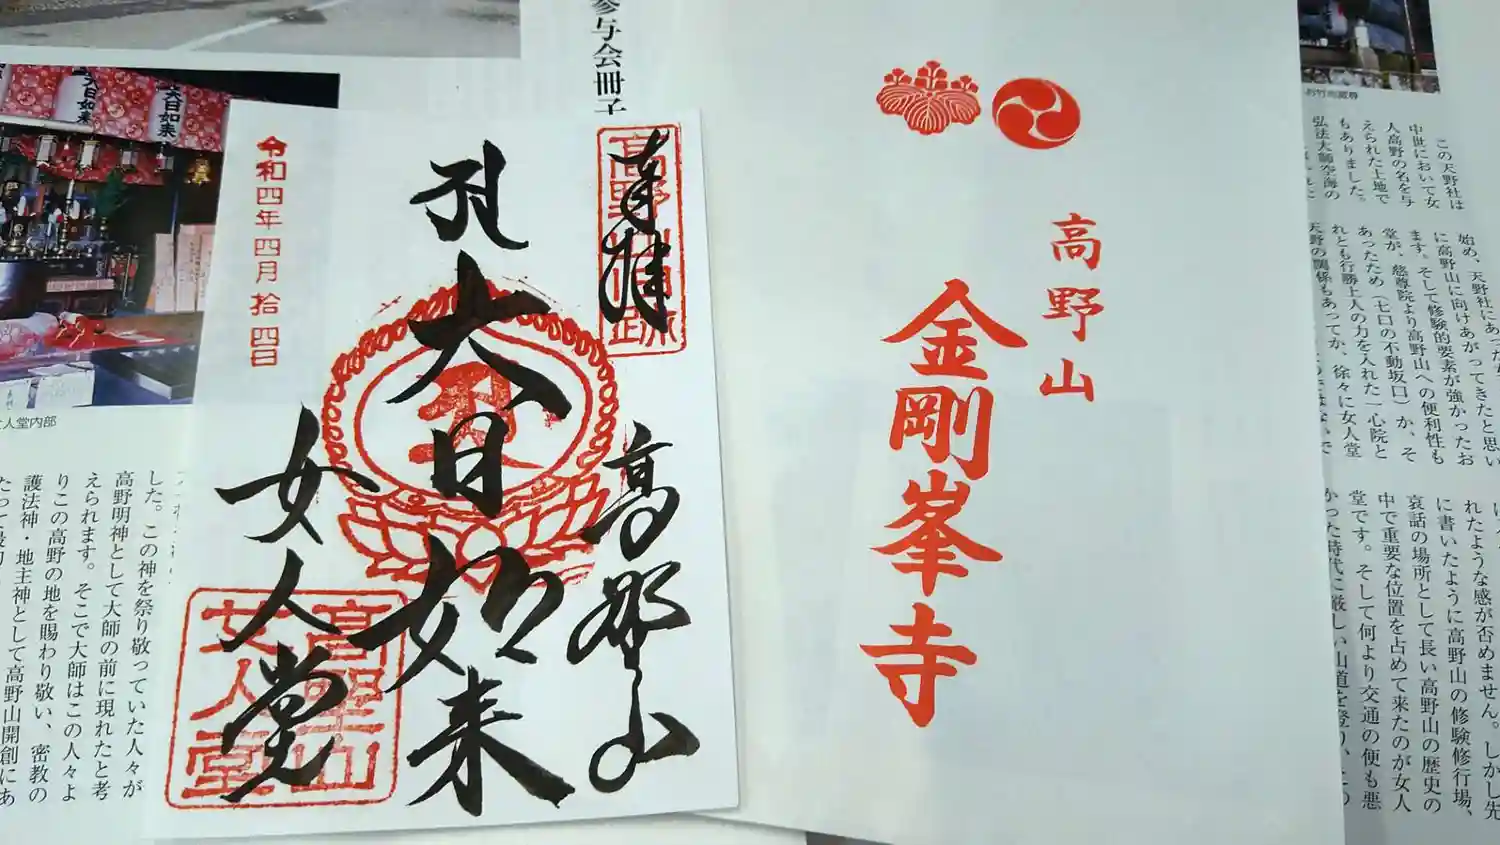 参与会冊子
大日如来
大日如来
女人堂内部
奉拝
高野山
大日如来
女人堂
令和四年四月拾四日
高野山
女人堂
高野山
金剛峯寺
した。この神を祭り敬っていた人々が
高野明神として大師の前に現れたと考
えられます。そこで大師はこの人々よ
りこの高野の地を賜わり敬い、密教の
護法神・地主神として高野山開創にあ
この天野社は
中世において女
人高野の名を与
えられた土地で
もありました。
弘法大師空海の
始め、天野社にあった
に高野山に向けあがってきたと思い
ます。そして修験的要素が強かったお
堂が、慈尊院より高野山への便利性も
あったため（七日の不動坂口）か、そ
れとも行勝上人の力を入れた一心院と
天野の関係もあってか、徐々に女人堂
れたような感が否めません。しかし先
に書いたように高野山の修験修行場、
哀話の場所として長い高野山の歴史の
中で重要な位置を占めて来たのが女人
堂です。そして何より交通の便も悪
かった時代に厳しい山道を登り、